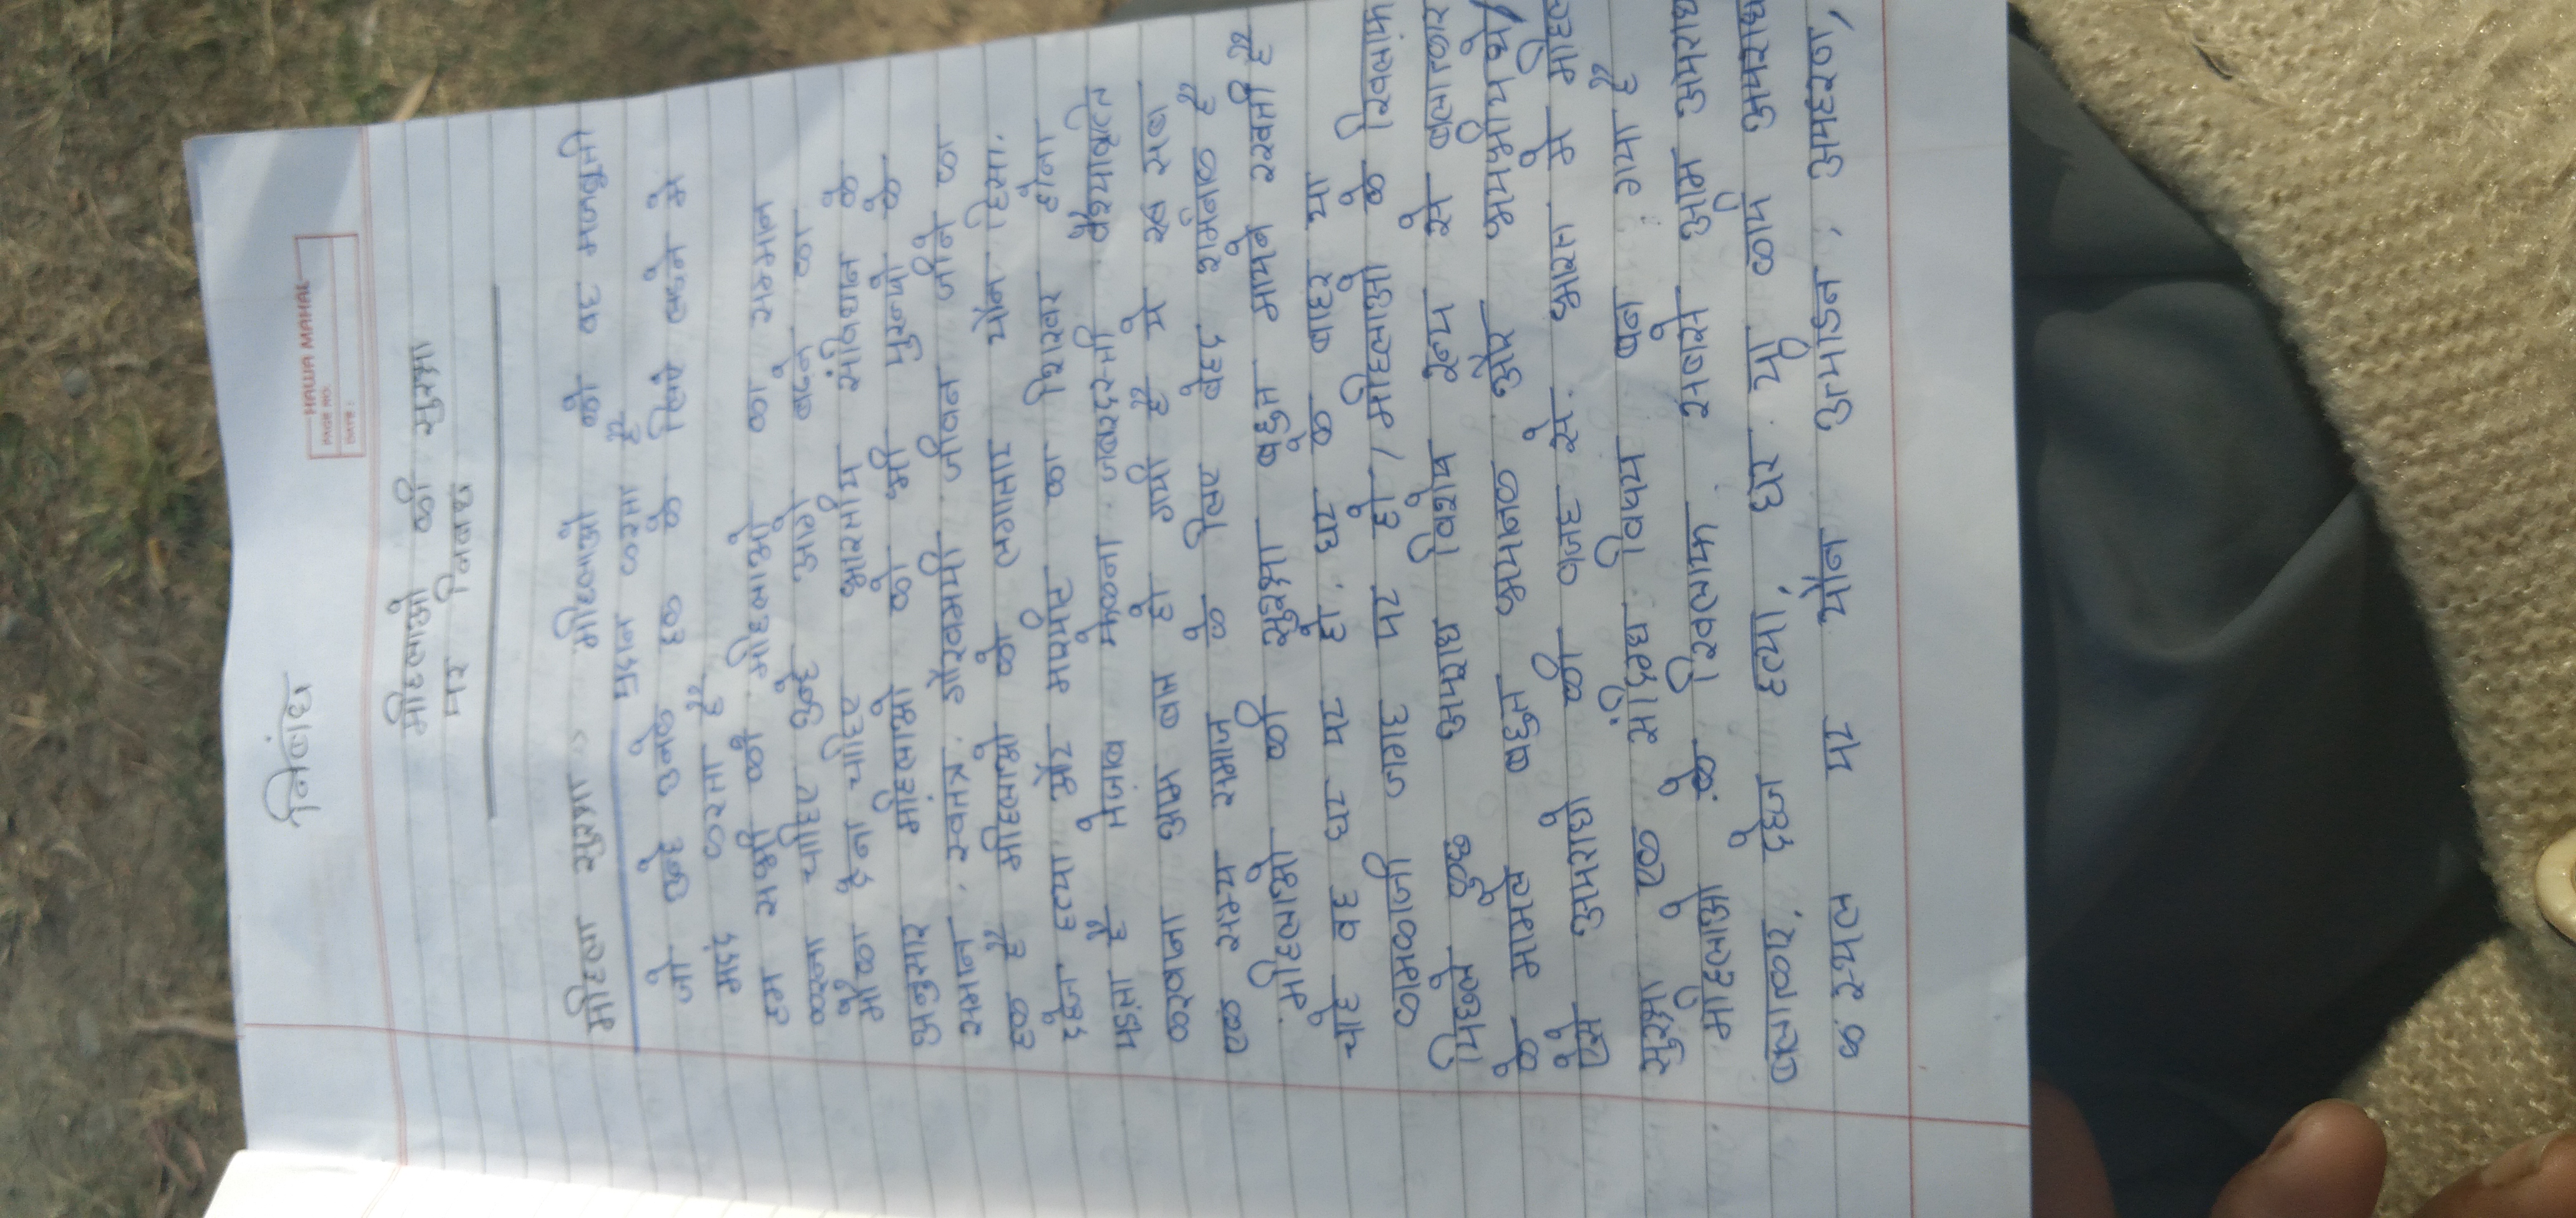 HAWA MAHAL
PAGE NO.
DATE:
निबंध
महिलाओ की सुरक्षा
पर निबंध
महिला सुरक्षा महिलाओ को वह मजबुती
प्रदान करता है
जो उन्हे उनके हक के लिए लडने मे
मदद करता है
हम सभी को महिलाओ का सम्मान
करना चाहिए उन्हे आगे बढने का
मौका देना चाहिए भारतीय संविधान के
अनुसार महिलाओ को भी पुरूषो के
समान, स्वतंत्र, गौरवमयी जीवन जीने का
हक है महिलाओ को लगातार यौन हिंसा,
दहेज हत्या और मारपीट का शिकार होना
पडता है तेजाब फेकना जबरदस्ती वैश्यावृति
करवाना आम बात हो गयी है ये सब
एक सभ्य समाज के लिए बेहद शर्मनाक है
महिलाओ की सुरक्षा बहुत मायने रखती है
चाहे वह घर पर हो, घर के बाहर या
कामकाजी जगह पर हो / महिलाओ के खिलाफ
पिछले कुछ अपराध विशेष रूप से बलात्कार
के मामले बहुत भयानक और भयभीय थे/
ऐसे अपराधो की वजह से भारत मे महिला
सुरक्षा एक संदिग्ध विषय बन गया है
महिलाओ के खिलाफ सबसे आम अपराध
बलात्कार, दहेज हत्या, घर या कार्य अपराध
के स्थल पर यौन उत्पाडन, अपहरण,